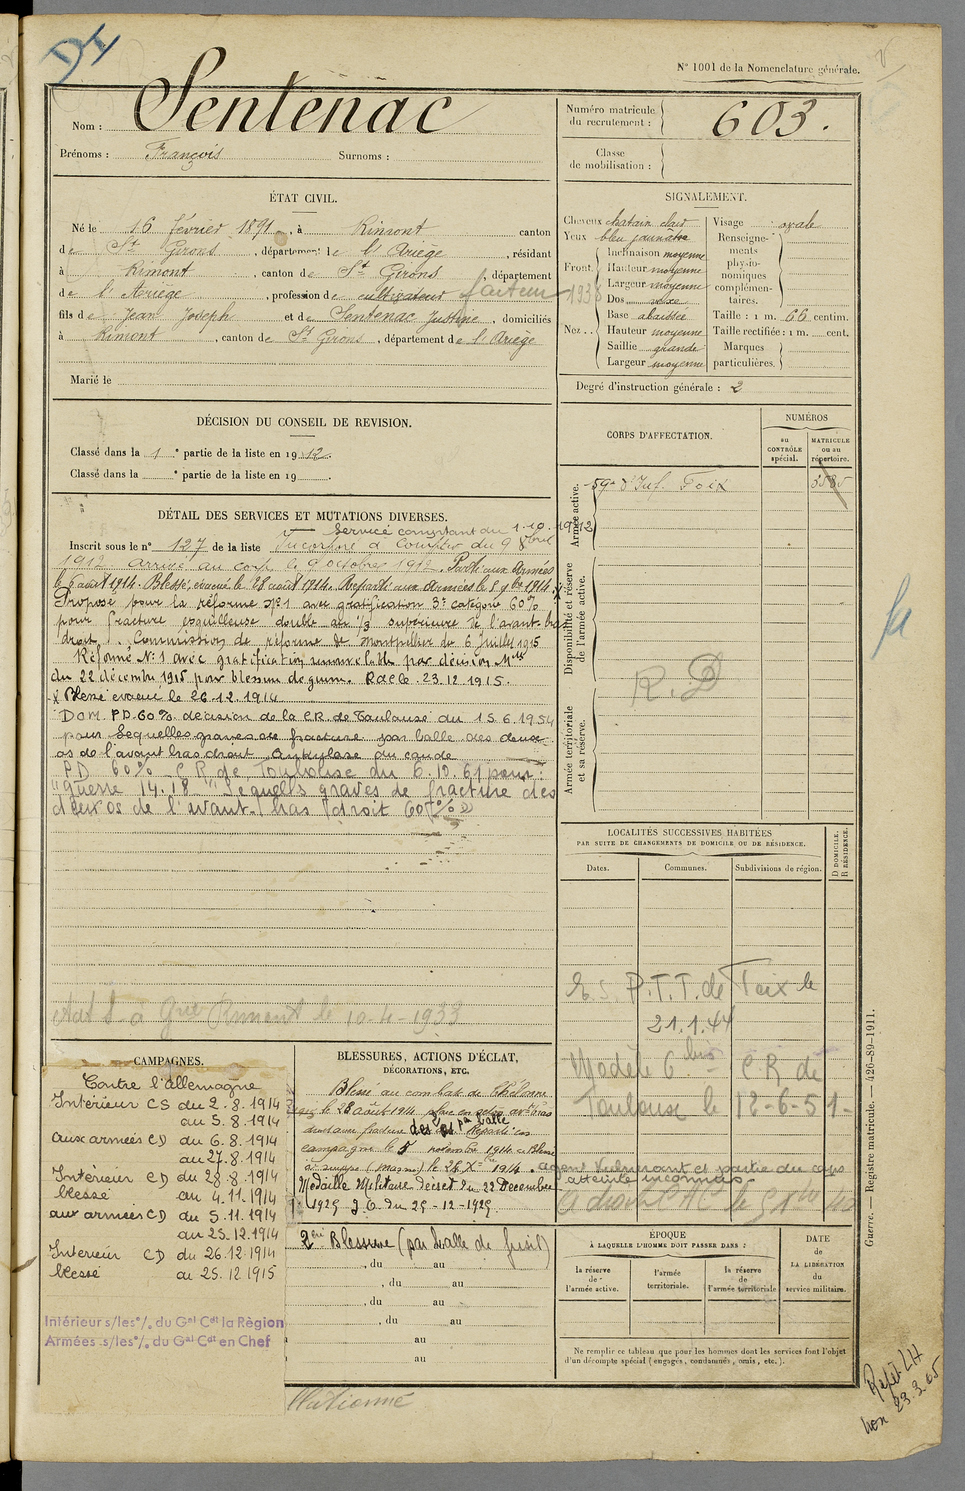 DI
N° 1001 de la Nomenclature générale.
Nom : Sentenac
Prénoms : François Surnoms :
Numéro matricule du recrutement : 603.
Classe de mobilisation :
ÉTAT CIVIL.
Né le 16 février 1891, à Rimont canton
de St Girons, département de l'Ariège, résidant
à Rimont, canton de St Girons, département
de l'Ariège, profession de cultivateur facteur 1938
fils de Jean Joseph et de Sentenac Justine, domiciliés
à Rimont, canton de St Girons, département de l'Ariège
Marié le
SIGNALEMENT.
Cheveux chatain clair
Yeux bleu jaunâtre
Front. Inclinaison moyenne
Hauteur moyenne
Largeur moyenne
Nez . . Dos
Base abaissée
Hauteur moyenne
Saillie grande
Largeur moyenne
Visage : ovale
Renseignements physionomiques complémentaires.
Taille : 1 m. 66 centim.
Taille rectifiée : 1 m. cent.
Marques particulières.
Degré d'instruction générale : 2
DÉCISION DU CONSEIL DE REVISION.
Classé dans la 1e partie de la liste en 1912.
Classé dans la e partie de la liste en 19 .
CORPS D'AFFECTATION.
NUMÉROS
au CONTRÔLE spécial.
MATRICULE ou au répertoire.
Armée active.
59e d'Inf. Foix
Disponibilité et réserve de l'armée active.
R.D
Armée territoriale et sa réserve.
DÉTAIL DES SERVICES ET MUTATIONS DIVERSES.
Service comptant du 1-10-1912
Inscrit sous le n° 127 de la liste Incorporé à compter du 9 8bre
1912 arrivé au corps le 9 octobre 1912. Parti aux Armées
le 6 août 1914. Blessé, évacué le 28 août 1914. Reparti aux Armées le 5 9bre 1914.
Proposé pour la réforme n°1 avec gratification 3e catégorie 60%
pour fracture esquilleuse double au 1/3 supérieur de l'avant-bras
droit. Commission de réforme de Montpellier du 6 juillet 1915
Réformé N°1 avec gratification renouvelable par décision Mlle
du 22 décembre 1915 pour blessure de guerre. Rdelle 23.12.1915.
x Blessé évacué le 26-12-1914
DOM. P.D. 60% décision de la C.R. de Toulouse du 15.6.1954
pour Séquelles graves de fracture par balle des deux
os de l'avant bras droit. Ankylose du coude
PD 60% C R de Toulouse du 6.12.61 pour :
"guerre 14.18 "Séquelles graves de fracture des
deux os de l'avant-bras droit 60%"
Rimont le 10-4-1933
LOCALITÉS SUCCESSIVES HABITÉES
PAR SUITE DE CHANGEMENTS DE DOMICILE OU DE RÉSIDENCE.
Dates. Communes. Subdivisions de région.
D DOMICILE.
R RÉSIDENCE.
P.T.T. de Foix le
21.1.44
Modèle 6 bis C R de
Toulouse le 12-6-51-
CAMPAGNES.
Contre l'Allemagne
Intérieur CS du 2.8.1914
au 5.8.1914
aux armées CD du 6.8.1914
au 27.8.1914
Intérieur CD du 28.8.1914
blessé au 4.11.1914
aux armées CD du 5.11.1914
au 25.12.1914
Intérieur CD du 26.12.1914
blessé au 25.12.1915
Intérieur s/les o/. du Gal Cdt la Règion
Armées s/les o/. du Gal Cdt en Chef
BLESSURES, ACTIONS D'ÉCLAT,
DÉCORATIONS, ETC.
Blessé au combat de
le 28 août 1914 plaie en avant bras
droit avec fracture des os par balle Reparti en
campagne le 5 novembre 1914 Blessé
à Suippe (Marne) le 26 Xbre 1914. agent vulnérant et partie du corps
atteinte inconnus.
Médaille Militaire décret du 22 Décembre
1925 J.O. du 29-12-1925
2ème Blessure (par balle de fusil)
, du au
, du au
, du au
, du au
au
au
ÉPOQUE
À LAQUELLE L'HOMME DOIT PASSER DANS :
la réserve de l'armée active.
l'armée territoriale.
la réserve de l'armée territoriale
DATE de LA LIBÉRATION du service militaire.
Ne remplir ce tableau que pour les hommes dont les services font l'objet
d'un décompte spécial (engagés, condamnés, omis, etc.).
Guerre. — Registre matricule. — 426-89-1911.
23.3.65